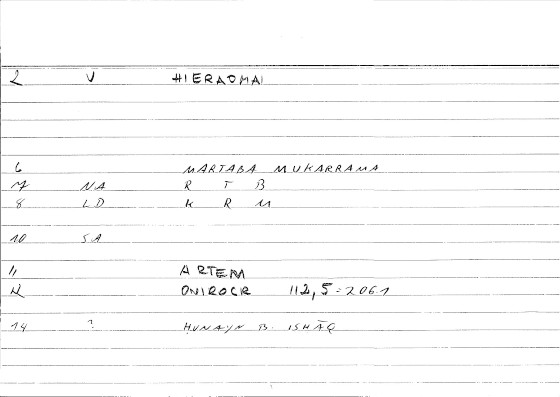 2 V HIERAOMAI
6 MARTABA MUKARRAMA
7 NA R T B
8 LD K R M
10 SA
11 ARTEM
12 ONIROCR 112,5=2061
14 ? HUNAYN B. ISHĀQ